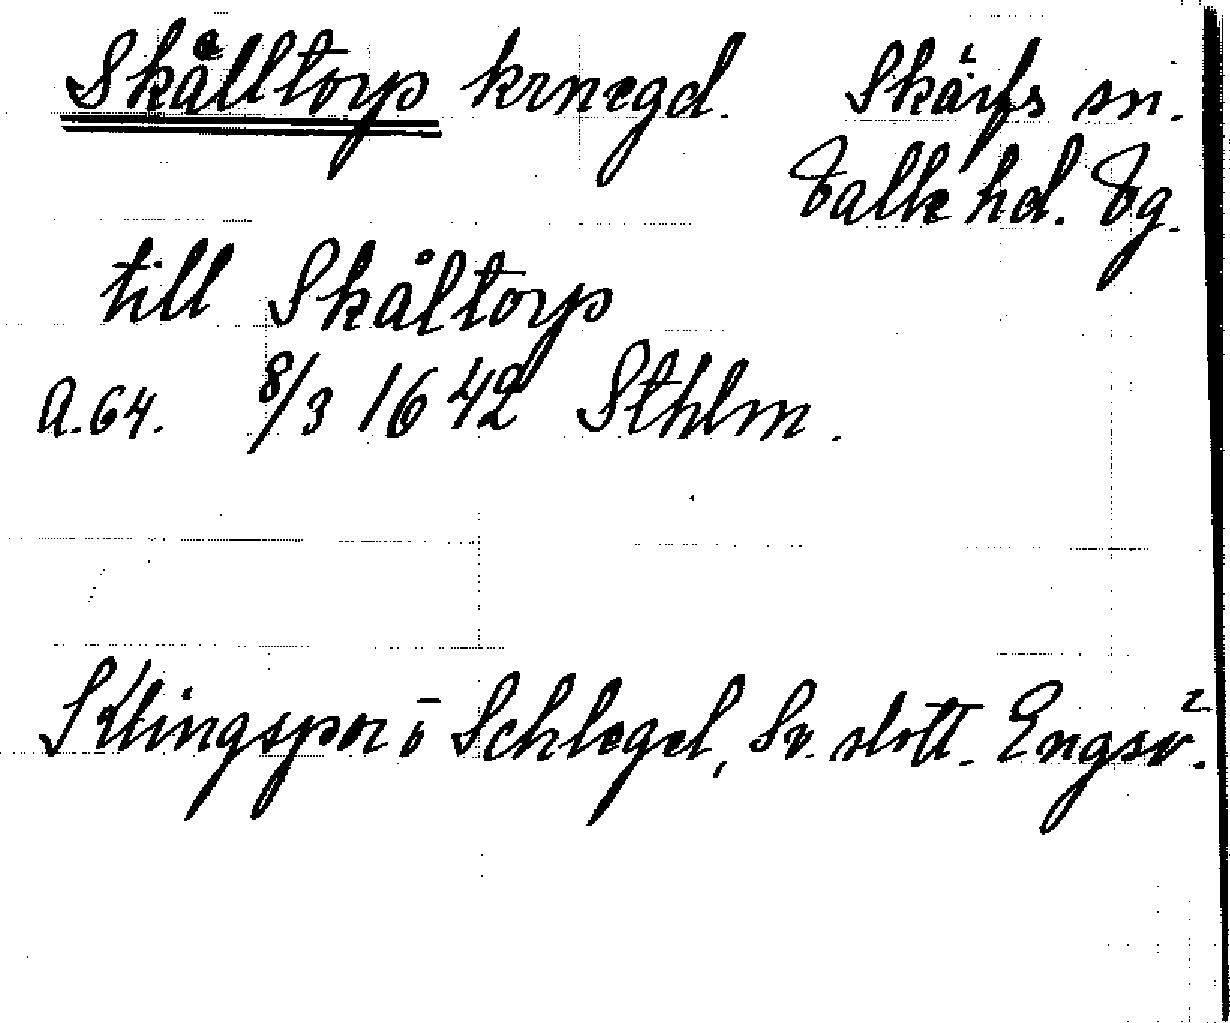 Skålltorp krnegd. Skärfs sn.
Valle hd. Vg.
till Skåltorp
A. 64. 8/3 1642 Sthlm.
Klingspor o Schlegel, Sv. slott. Engsö².